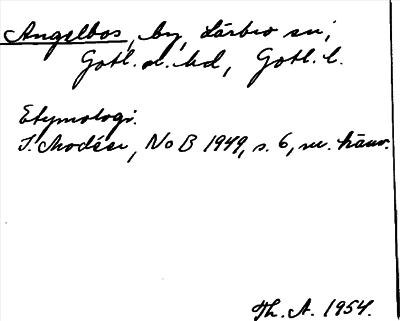 Angelbos, by, Lärbro sn,
Gotl. n. hd, Gotl. l.
Etymologi.
I. Modéer, NoB 1949, s. 6, m. hänv.
Th. A. 1954.